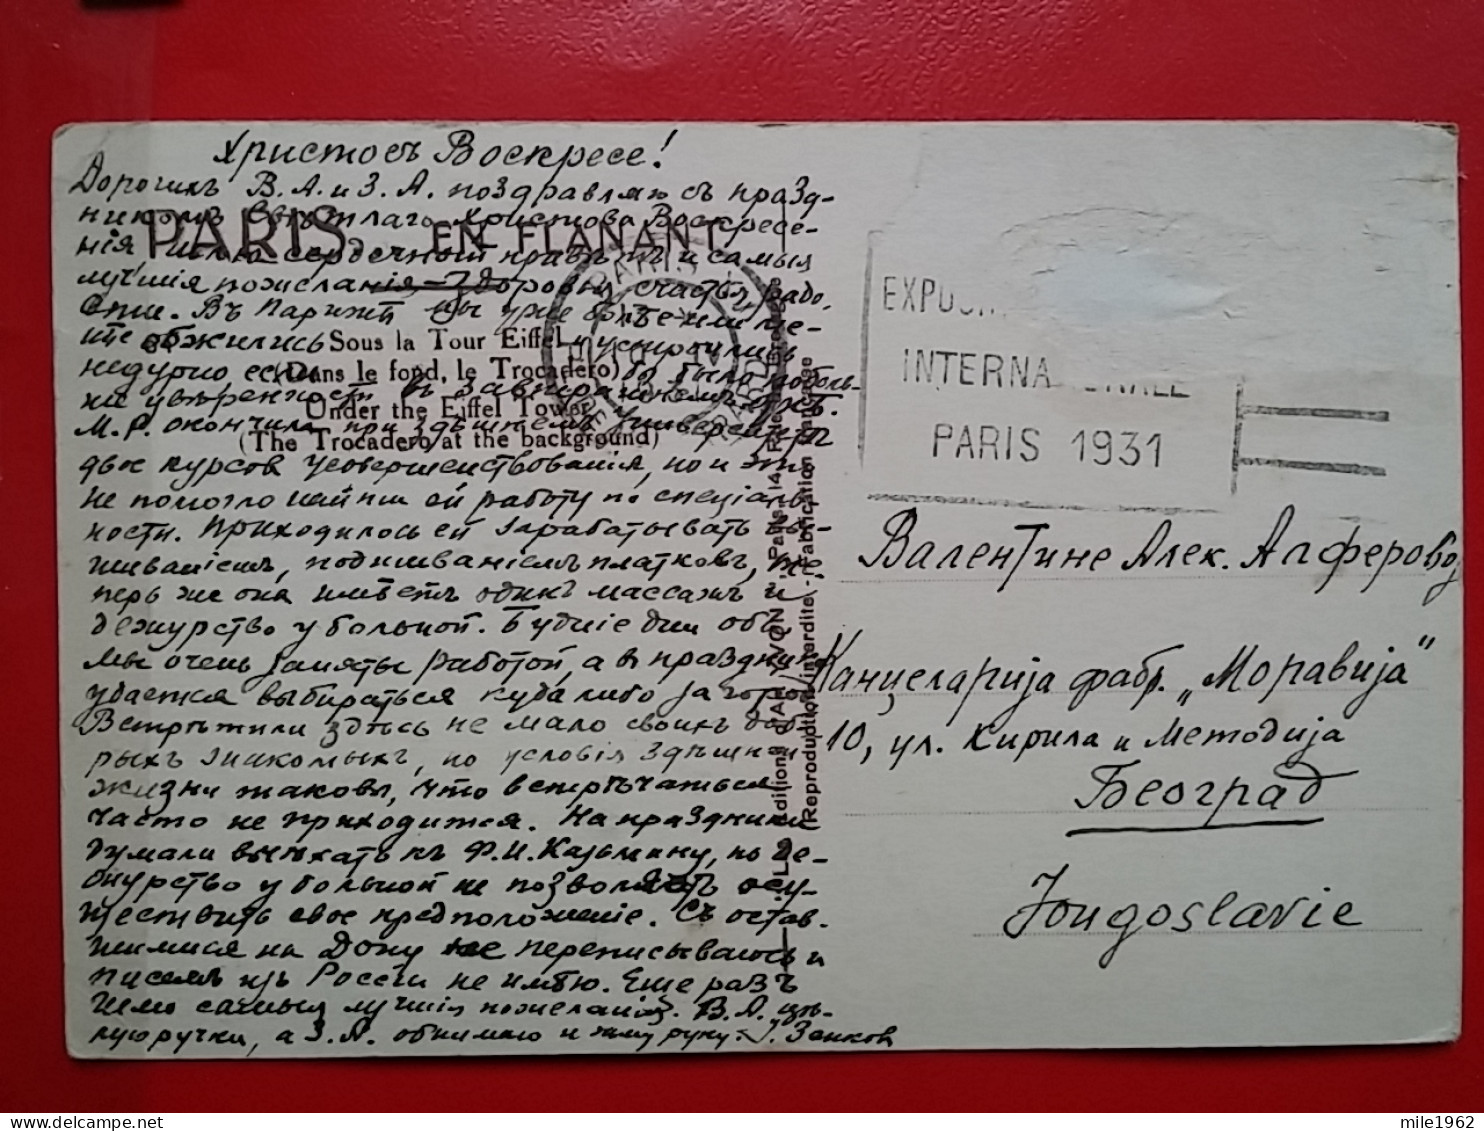 Христосъ Воскресе!
Дорогихъ В. А. и З. А. поздравляю съ празд-
никомъ Свѣтлаго Христова Воскресе-
нія, шлю сердечный привѣтъ и самыя
лучшія пожеланія – здоровья, счастья, радо-
сти. Въ Парижѣ мы уже болѣе или ме-
нѣе обжились и устроились
недурно если бо было побольше
увѣренности въ завтрашнемъ днѣ.
М. Р. окончила при здѣшнемъ Университетѣ
двое курсов усовершенствованія, но и это
не помогло найти ей работу по спеціаль-
ности. Приходилось ей зарабатывать вы-
шиваніемъ, подшиваніемъ платковъ, те-
перь же она имѣетъ одинъ массажъ и
дежурство у больной. Будніе дни оба
мы очень заняты работой, а въ праздники
удается выбираться куда либо за городъ.
Встрѣтили здѣсь не мало своихъ доб-
рыхъ знакомыхъ, но условія здѣшней
жизни таковы, что встрѣчаться
часто не приходится. На праздники
думали выѣхать къ Ф. И. Казьмину, но де-
журство у больной не позволяетъ осу-
ществить свое предположеніе. Съ остав-
шимися на Дону не переписываюсь и
писемъ изъ Россіи не имѣю. Еще разъ
шлю самыя лучшія пожеланія. В. А. цѣ-
лую ручки, а З. А. обнимаю и жму руку.
PARIS EN FLANANT
Sous la Tour Eiffel
(Dans le fond, le Trocadero)
Under the Eiffel Tower
(The Trocadero at the background)
PARIS
Editions d'Art YVON, Paris, 14
(Reproduction interdite - Fabrication française
INTERNA
PARIS 1931
Валентине Алек. Алферовой
Канцеларија фабр. „Моравија"
10, ул. Кирила и Методија
Београд
Yougoslavie
mile1962